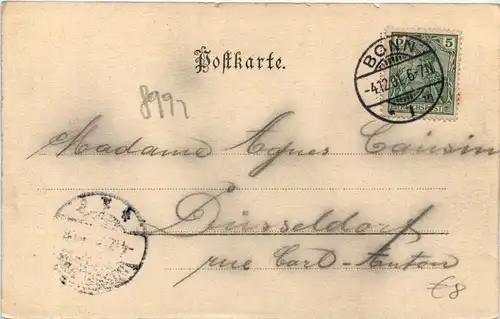 Postkarte.
BONN
-4.12.01. 6-7N
1
5
REICHSPOST
8992
Madame Agnes Cousin
Düsseldorf
rue Carl-Anton
€8